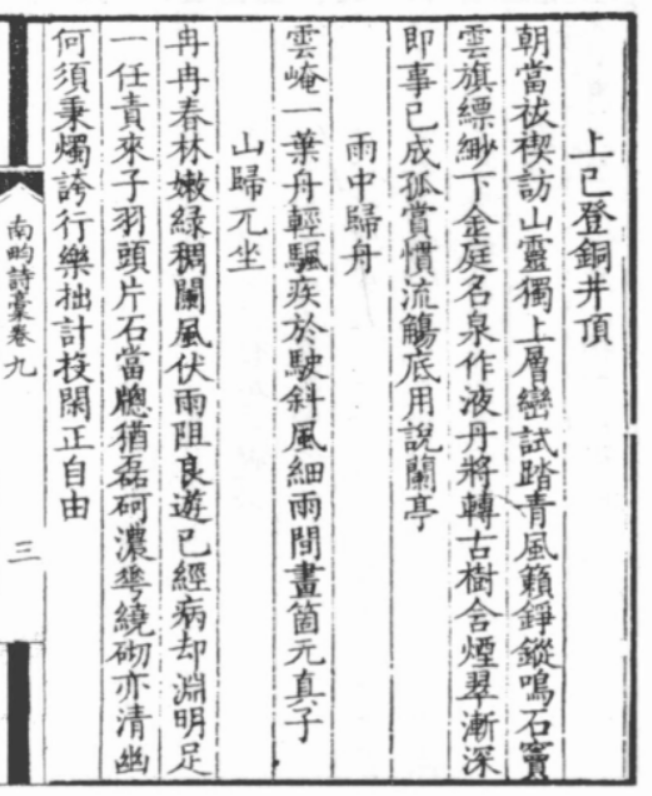 上巳登銅井頂
朝當祓禊訪山靈獨上層巒試踏青風籟錚鏦鳴石竇
雲旗縹緲下金庭名泉作液丹將轉古樹含煙翠漸深
即事已成孤賞慣流觴底用說蘭亭
雨中歸舟
雲崦一葉舟輕颿疾於駛斜風細雨間畫箇元真子
山歸兀坐
冉冉春林嫩綠稠闌風伏雨阻良遊已經病却淵明足
一任責來子羽頭片石當牕猶磊砢濃雲繞砌亦清幽
何須秉燭誇行樂拙計投閑正自由
南畇詩稾卷九
三